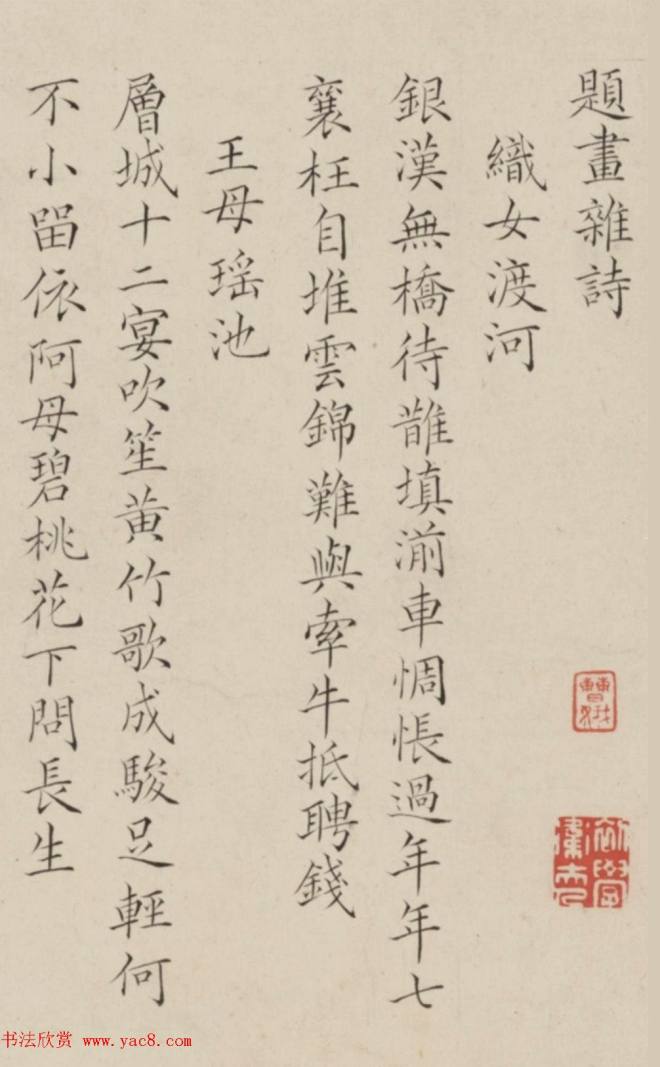 題畫雜詩
織女渡河
銀漢無橋待鵲填湔車惆悵過年年七
襄枉自堆雲錦難與牽牛抵聘錢
王母瑶池
層城十二宴吹笙黃竹歌成駿足輕何
不小留依阿母碧桃花下問長生
书法欣赏 www.yac8.com